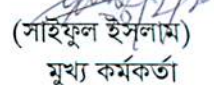 (সাইফুল ইসলাম)
মুখ্য কর্মকর্তা